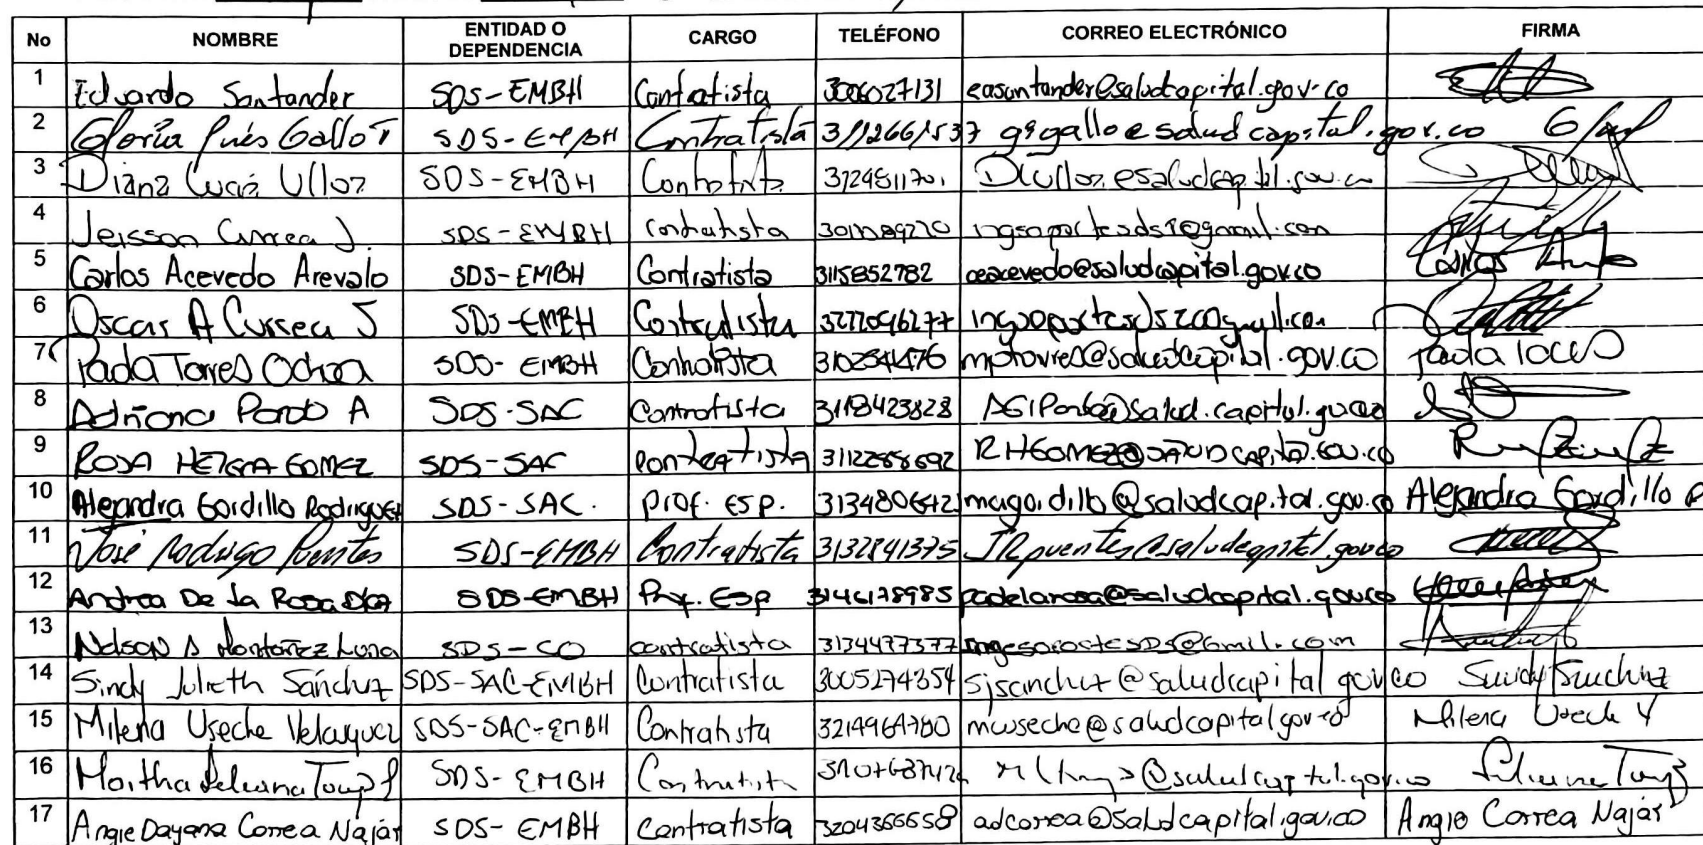 No NOMBRE ENTIDAD O DEPENDENCIA CARGO TELÉFONO CORREO ELECTRÓNICO FIRMA
1 Eduardo Santander SDS-EMBH Contratista 3006027131 easantander@saludcapital.gov.co
2 Gloria Inés Gallo T SDS-EMBH Contratista 3112661537 gigallo@saludcapital.gov.co
3 Diana Lucía Ulloa SDS-EMBH Contratista 3124511701 Dlulloa@saludcapital.gov.co
4 Jeisson Currea J. SDS-EMBH contratista
5 Carlos Acevedo Arevalo SDS-EMBH Contratista 3115852782 ceacevedo@saludcapital.gov.co Carlos
6 Oscar A Currea J SDS-EMBH Contratista 3272046277
7 Paola Torres Ochoa SDS-EMBH Contratista 3102544476 mptorres@saludcapital.gov.co Paola Torres O
8 Adriana Pardo A SDS-SAC Contratista 3118423828 AGIPardo@salud.capital.gov.co
9 ROSA HELENA GOMEZ SDS-SAC contratista 3112288692 RHGOMEZ@SALUDCapital.GOV.CO
10 Alejandra Gordillo Rodriguez SDS-SAC. Prof. ESP. 3134806421 magordillo@saludcapital.gov.co Alejandra Gordillo R
11 José Rodrigo Puentes SDS-EMBH Contratista 3132841375 JRpuentes@saludcapital.gov.co
12 Andrea De La Rosa Diaz SDS-EMBH Prof. Esp 3146178985 padelarosa@saludcapital.gov.co
13 Nelson A Montañez Luna SDS-CO contratista 3134477377
14 Sindy Julieth Sánchez SDS-SAC-EMBH Contratista 3005274354 sjsanchez@saludcapital.gov.co Sindy Sanchez
15 Milena Useche Velasquez SDS-SAC-EMBH Contratista 3214964780 museche@saludcapital.gov.co Milena Useche V
16 Martha Liliana SDS-EMBH Contratista @saludcapital.gov.co Liliana
17 Angie Dayana Correa Najar SDS-EMBH Contratista 3204366658 adcorrea@saludcapital.gov.co Angie Correa Najar